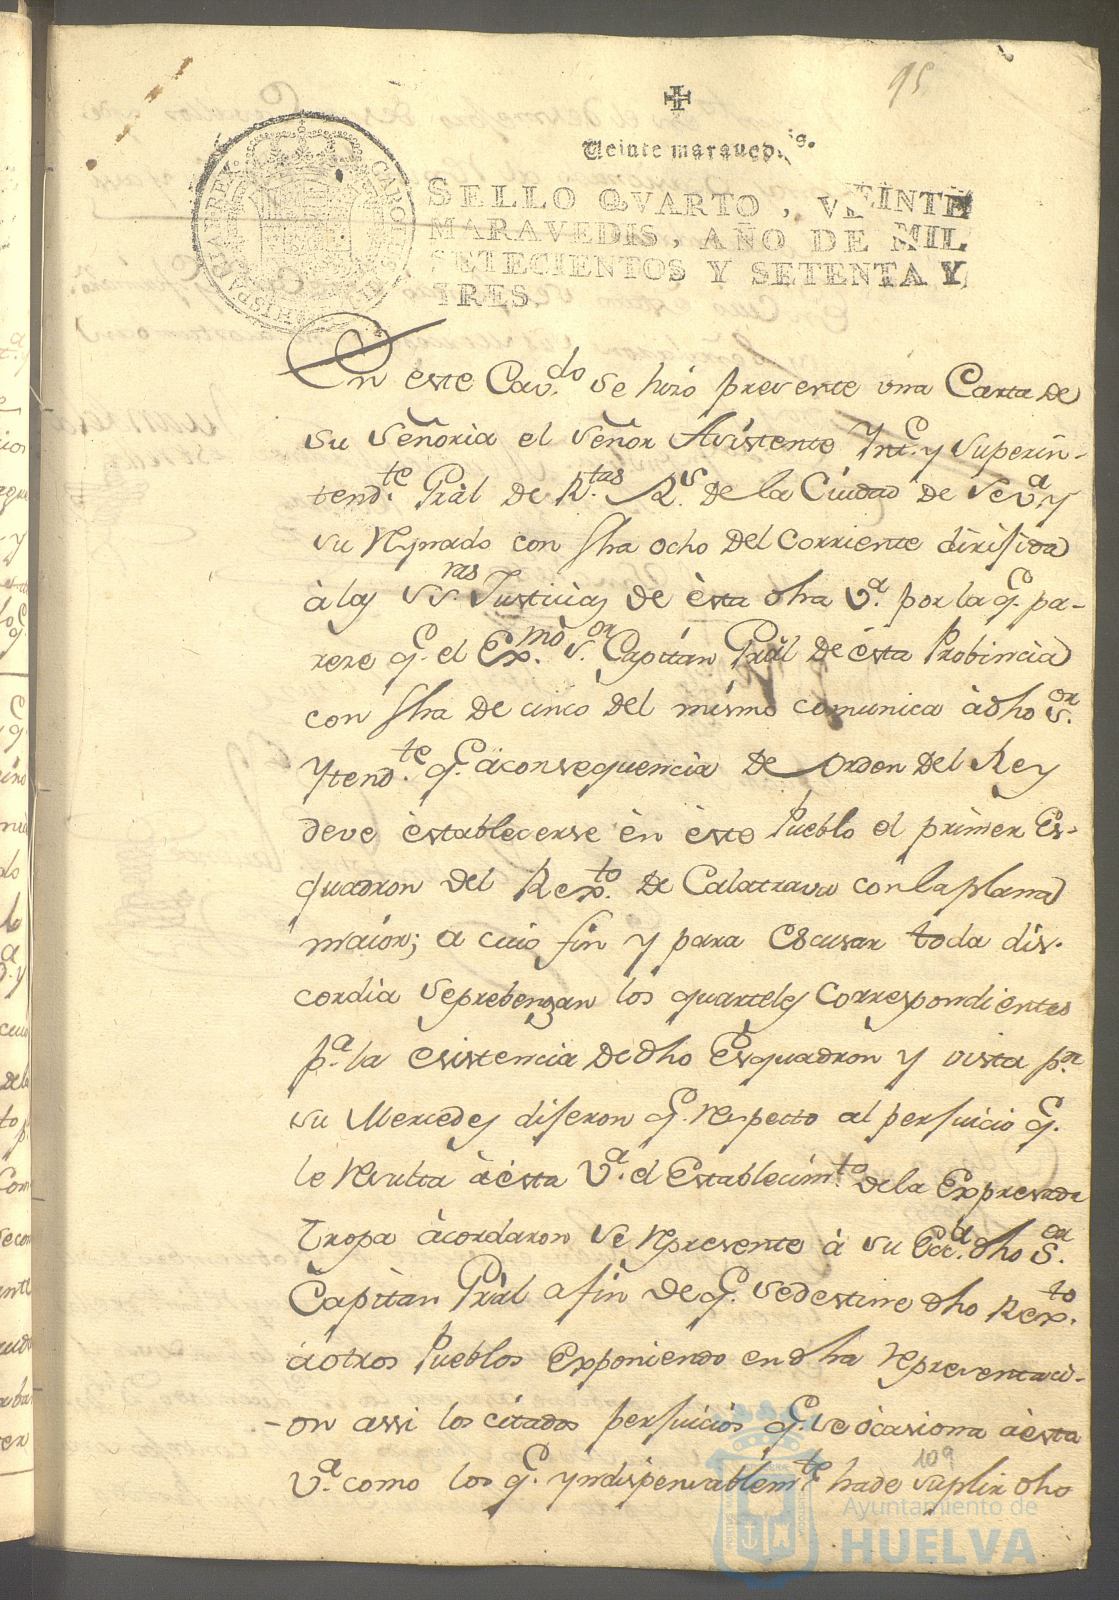 95
Veinte maravedis.
SELLO QVARTO, VEINTE
MARAVEDIS, AÑO DE MIL
SETECIENTOS Y SETENTA Y
TRES.
En este Cav.do se hizo presente una Carta de
su señoria el señor Asistente Ynt.e y superin-
tend.te Gràl de R.tas R.s de la Ciudad de Sev.a y
su Reynado con fha ocho del corriente dirijida
à las SS.ras Justicias de èsta dha V.a por la q.e pa-
reze q.e el Ex.mo s.or Capitan Gràl de ésta Probincia
con fha de cinco del mismo comunica à dho s.or
Ytend.te q.e àconsequencia de orden del Rey
deve èstablecerse èn èste Pueblo el primer Es-
quadron del Rex.to de Calatrava con la plana
maior; a cuio fin y para escusar toda dis-
cordia se prebengan los quarteles correspondientes
p.a la esistencia de dho Esquadron y vista p.r
su Mercedes dijeron q.e respecto al perjuicio q.e
le resulta àésta V.a el Establecim.to de la Expresada
tropa àcordaron se represente à su Ex.a dho S.or
Capitàn Gràl a fin de q.e se destine dho Rex.to
àotros Pueblos Exponiendo en dha representaci-
-on assi los citados perjuicios q.e se òcasiona àesta
V.a como los q.e yndispensablem.te ha de suplir dho
109
Ayuntamiento de
HUELVA